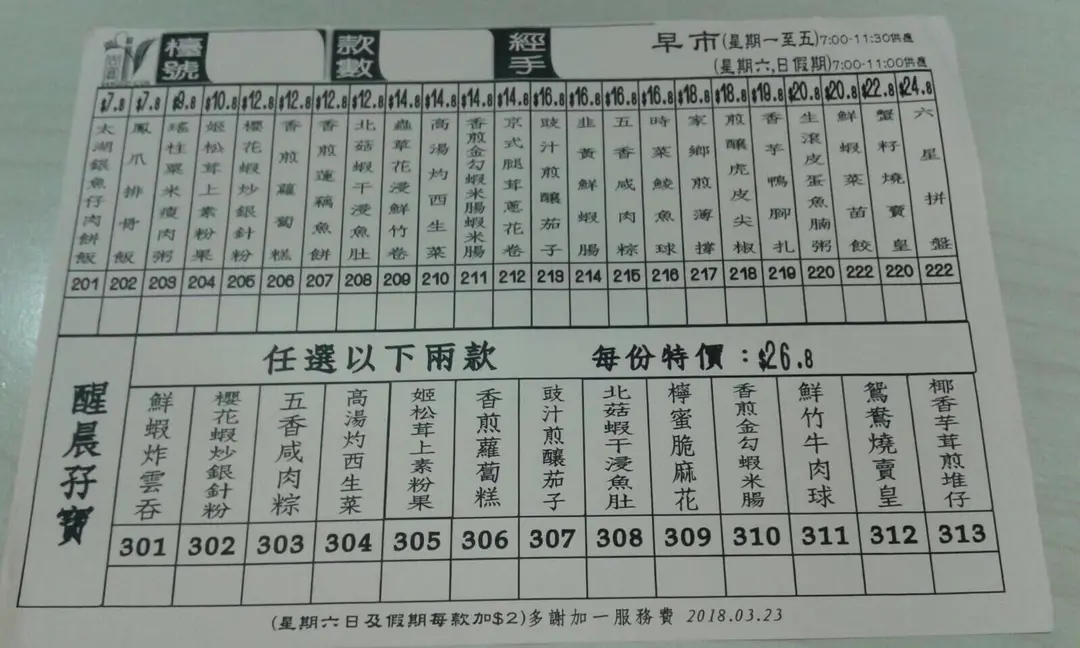 檯號
款數
經手
早市(星期一至五)7:00-11:30供應
(星期六,日假期)7:00-11:00供應
$7.8 $7.8 $9.8 $10.8 $12.8 $12.8 $12.8 $12.8 $14.8 $14.8 $14.8 $14.8 $16.8 $16.8 $16.8 $16.8 $18.8 $18.8 $19.8 $20.8 $20.8 $22.8 $24.8
太湖銀魚仔肉餅飯
鳳爪排骨飯
瑤柱粟米瘦肉粥
姬松茸上素粉果
櫻花蝦炒銀針粉
香煎蘿蔔糕
香煎蓮藕魚餅
北菇蝦干浸魚肚
蟲草花浸鮮竹卷
高湯灼西生菜
香煎金勾蝦米腸蝦米腸
京式腿茸蔥花卷
豉汁煎釀茄子
韭黃鮮蝦腸
五香咸肉粽
時菜鯪魚球
家鄉煎薄撐
煎釀虎皮尖椒
香芋鴨腳扎
生滾皮蛋魚腩粥
鮮蝦菜苗餃
蟹籽燒賣皇
六星拼盤
201 202 203 204 205 206 207 208 209 210 211 212 213 214 215 216 217 218 219 220 222 220 222
醒晨孖寶
任選以下兩款 每份特價：$26.8
鮮蝦炸雲吞
櫻花蝦炒銀針粉
五香咸肉粽
高湯灼西生菜
姬松茸上素粉果
香煎蘿蔔糕
豉汁煎釀茄子
北菇蝦干浸魚肚
檸蜜脆麻花
香煎金勾蝦米腸
鮮竹牛肉球
鴛鴦燒賣皇
椰香芋茸煎堆仔
301 302 303 304 305 306 307 308 309 310 311 312 313
(星期六日及假期每款加$2)多謝加一服務費 2018.03.23